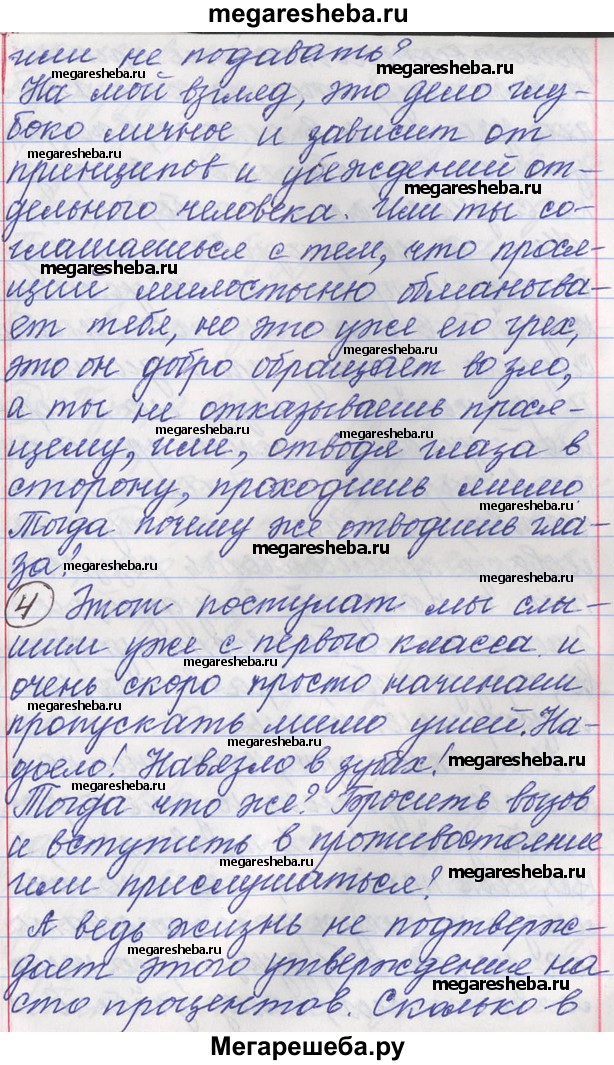 megaresheba.ru
или не подавать?
megaresheba.ru
На мой взгляд, это дело глу-
megaresheba.ru
боко личное и зависит от
megaresheba.ru
принципов и убеждений от-
megaresheba.ru
дельного человека. Или ты со-
глашаешься с тем, что прося-
megaresheba.ru
щий милостыню обманыва-
ет тебя, но это уже его грех,
megaresheba.ru
это он добро обращает во зло,
а ты не отказываешь прося-
megaresheba.ru
щему, или, отводя глаза в
сторону, проходишь мимо.
megaresheba.ru
Тогда почему же отводишь гла-
megaresheba.ru
за?
megaresheba.ru
4 Этот постулат мы слы-
megaresheba.ru
шим уже с первого класса и
megaresheba.ru
очень скоро просто начинаем
пропускать мимо ушей. На-
megaresheba.ru
доело! Навязло в зубах!
megaresheba.ru
Тогда что же? Бросить вызов
megaresheba.ru
и вступить в противостояние
megaresheba.ru
или прислушаться?
megaresheba.ru
А ведь жизнь не подтверж-
megaresheba.ru
дает этого утверждение на
megaresheba.ru
сто процентов. Сколько в
Мегарешеба.ру